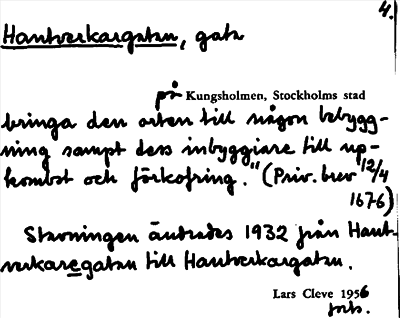 4.
Hantverkargatan, gata
på Kungsholmen, Stockholms stad
bringa den orten till någon bebygg-
ning sampt dess inbyggiare till up-
komst och förkofring." (Priv. brev 12/4
1676)
Stavningen ändrades 1932 från Hant-
verkaregatan till Hantverkargatan.
Lars Cleve 1956
forts.